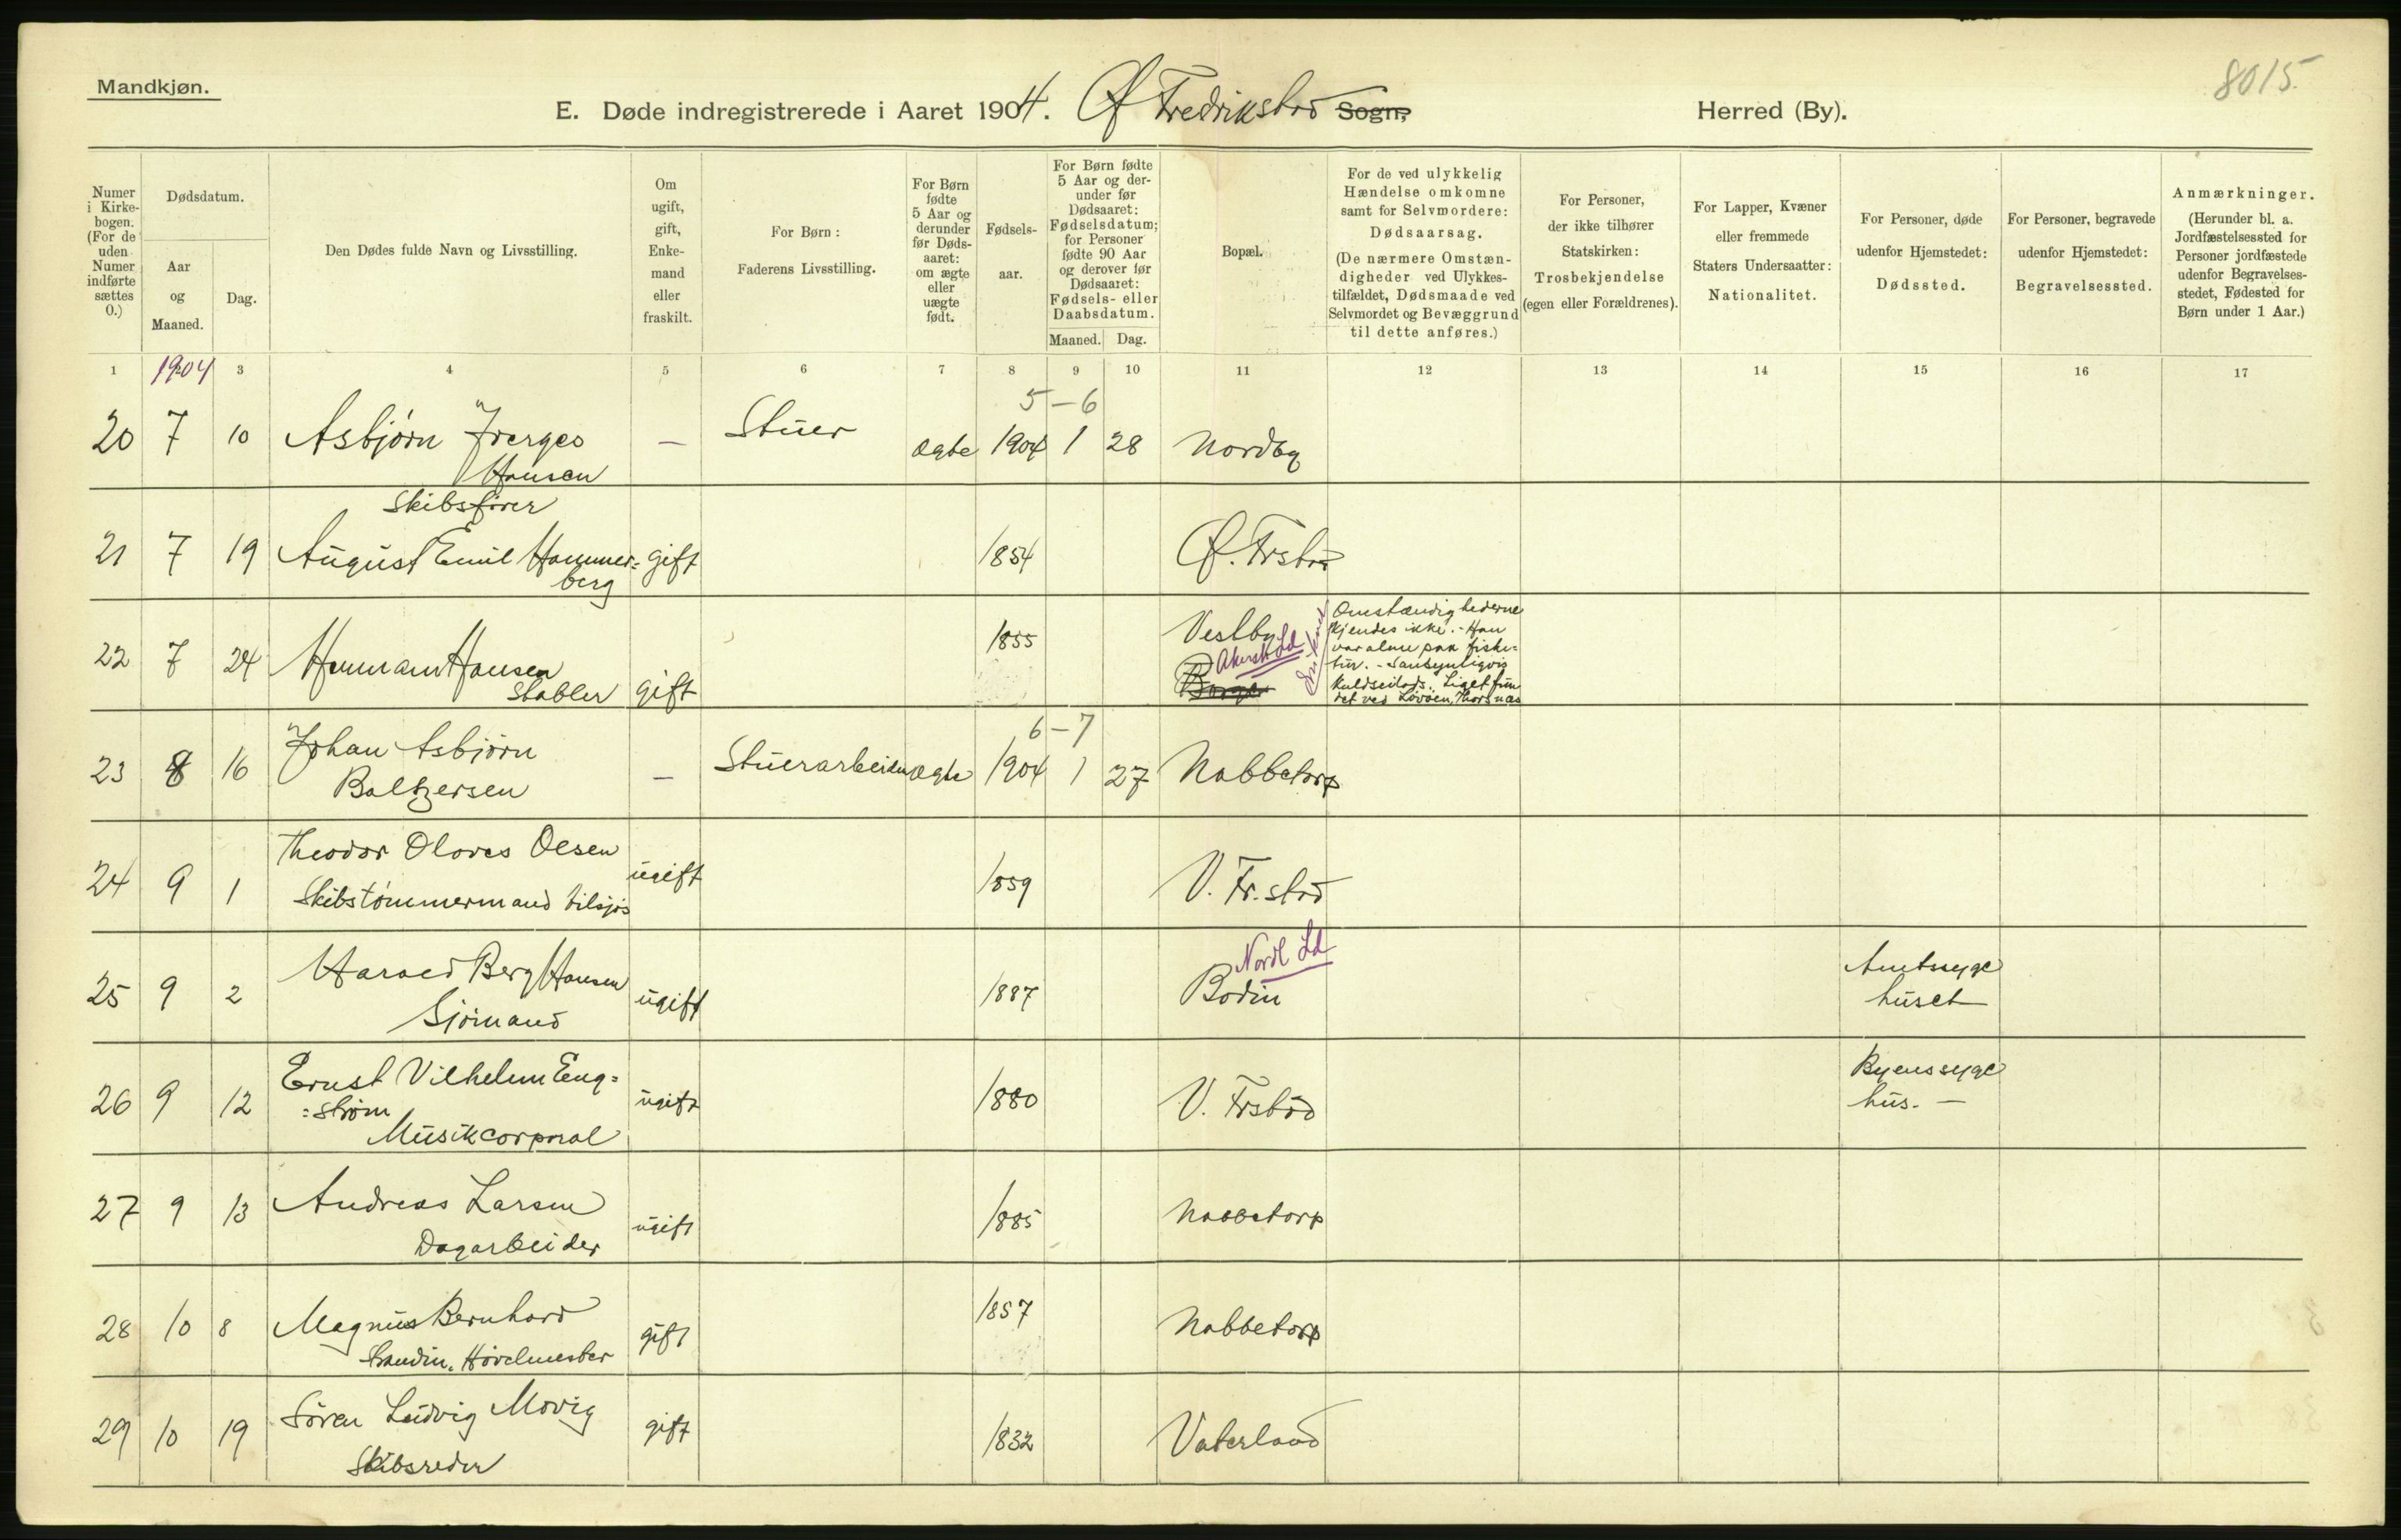 Mandkjøn.
8015.
E. Døde indregistrerede i Aaret 1904. Ø Fredriksstad Sogn, Herred (By).
Numer i Kirkebogen. (For de uden Numer indførte sættes 0.)
Dødsdatum.
Aar og Maaned.
Dag.
Den Dødes fulde Navn og Livsstilling.
Om ugift, gift, Enkemand eller fraskilt.
For Børn: Faderens Livsstilling.
For Børn fødte 5 Aar og derunder før Dødsaaret: om ægte eller uægte født.
Fødselsaar.
For Børn fødte 5 Aar og derunder før Dødsaaret: Fødselsdatum; for Personer fødte 90 Aar og derover før Dødsaaret: Fødsels- eller Daabsdatum.
Maaned. Dag.
Bopæl.
For de ved ulykkelig Hændelse omkomne samt for Selvmordere: Dødsaarsag.
(De nærmere Omstændigheder ved Ulykkestilfældet, Dødsmaade ved Selvmordet og Bevæggrund til dette anføres.)
For Personer, der ikke tilhører Statskirken: Trosbekjendelse (egen eller Forældrenes).
For Lapper, Kvæner eller fremmede Staters Undersaatter: Nationalitet.
For Personer, døde udenfor Hjemstedet: Dødssted.
For Personer, begravede udenfor Hjemstedet: Begravelsessted.
Anmærkninger.
(Herunder bl. a. Jordfæstelsessted for Personer jordfæstede udenfor Begravelsesstedet, Fødested for Børn under 1 Aar.)
1 1904 3 4 5 6 7 8 9 10 11 12 13 14 15 16 17
5 - 6
20 7 10 Asbjørn Hansen — Stuer ægte 1904 1 28 Nordby
Skibsfører
21 7 19 August Emil Hammer= gift 1854 Ø. Frstad
berg
22 7 24 Herman Hansen
Stabler gift 1855 Vestby
Akersh Ld
Borge
Omstændighederne
kjendes ikke. - Han
var alene paa fiske=
tur. - Sansynligvis
kuldseilads. Liget fun
det ved Løvøen, Thorsnæs
6 - 7
23 8 16 Johan Asbjørn
Baltzersen — Stuerarbeider ægte 1904 1 27 Nabbetorp
24 9 1 Theodor Olaves Olsen
Skibstømmermand tilsjøs ugift 1859 V. Fr.stad
25 9 2 Harald Berg Hansen
Sjømand ugift 1887 Nordl Ld
Bodin
Amtssyge
huset
26 9 12 Ernst Vilhelm Eng=
=strøm
Musikcorporal ugift 1880 V. Frstad
Byenssyge
hus. —
27 9 13 Andreas Larsen
Dagarbeider ugift 1885 Nabbetorp
28 10 8 Magnus Bernhard
Høvelmester gift 1857 Nabbetorp
29 10 19 Søren Ludvig Movig
Skibsreder gift 1832 Vaterland